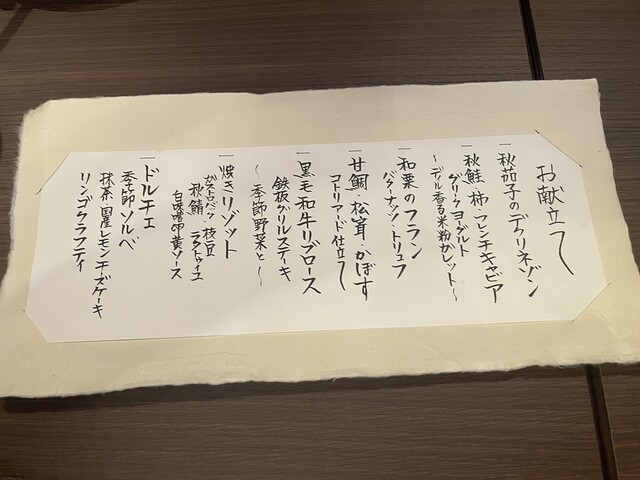 お献立て
一 秋茄子のデクリネゾン
一 秋鮭・柿・フレンチキャビア
グリークヨーグルト
～ディル香る米粉ガレット～
一 和栗のフラン
バターナッツ・トリュフ
一 甘鯛・松茸・かぼす
コトリアード仕立て
一 黒毛和牛リブロース
鉄板グリルステーキ
～季節野菜と～
一 焼きリゾット
ガストロバック枝豆
秋鯖 ラタトゥイユ
白味噌卵黄ソース
一 ドルチェ
季節ソルベ
抹茶・国産レモンチーズケーキ
リンゴクラフティ